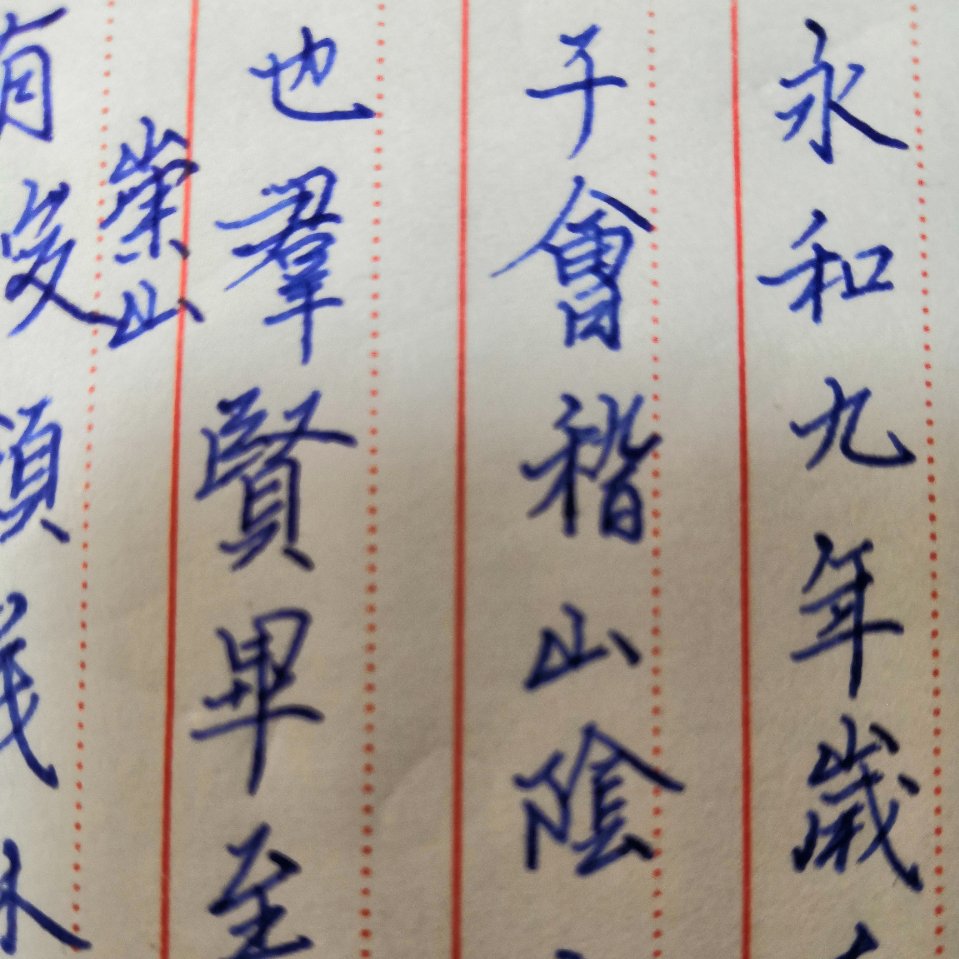 永和九年歲
于會稽山陰
也羣賢畢至
崇山
有
領茂林